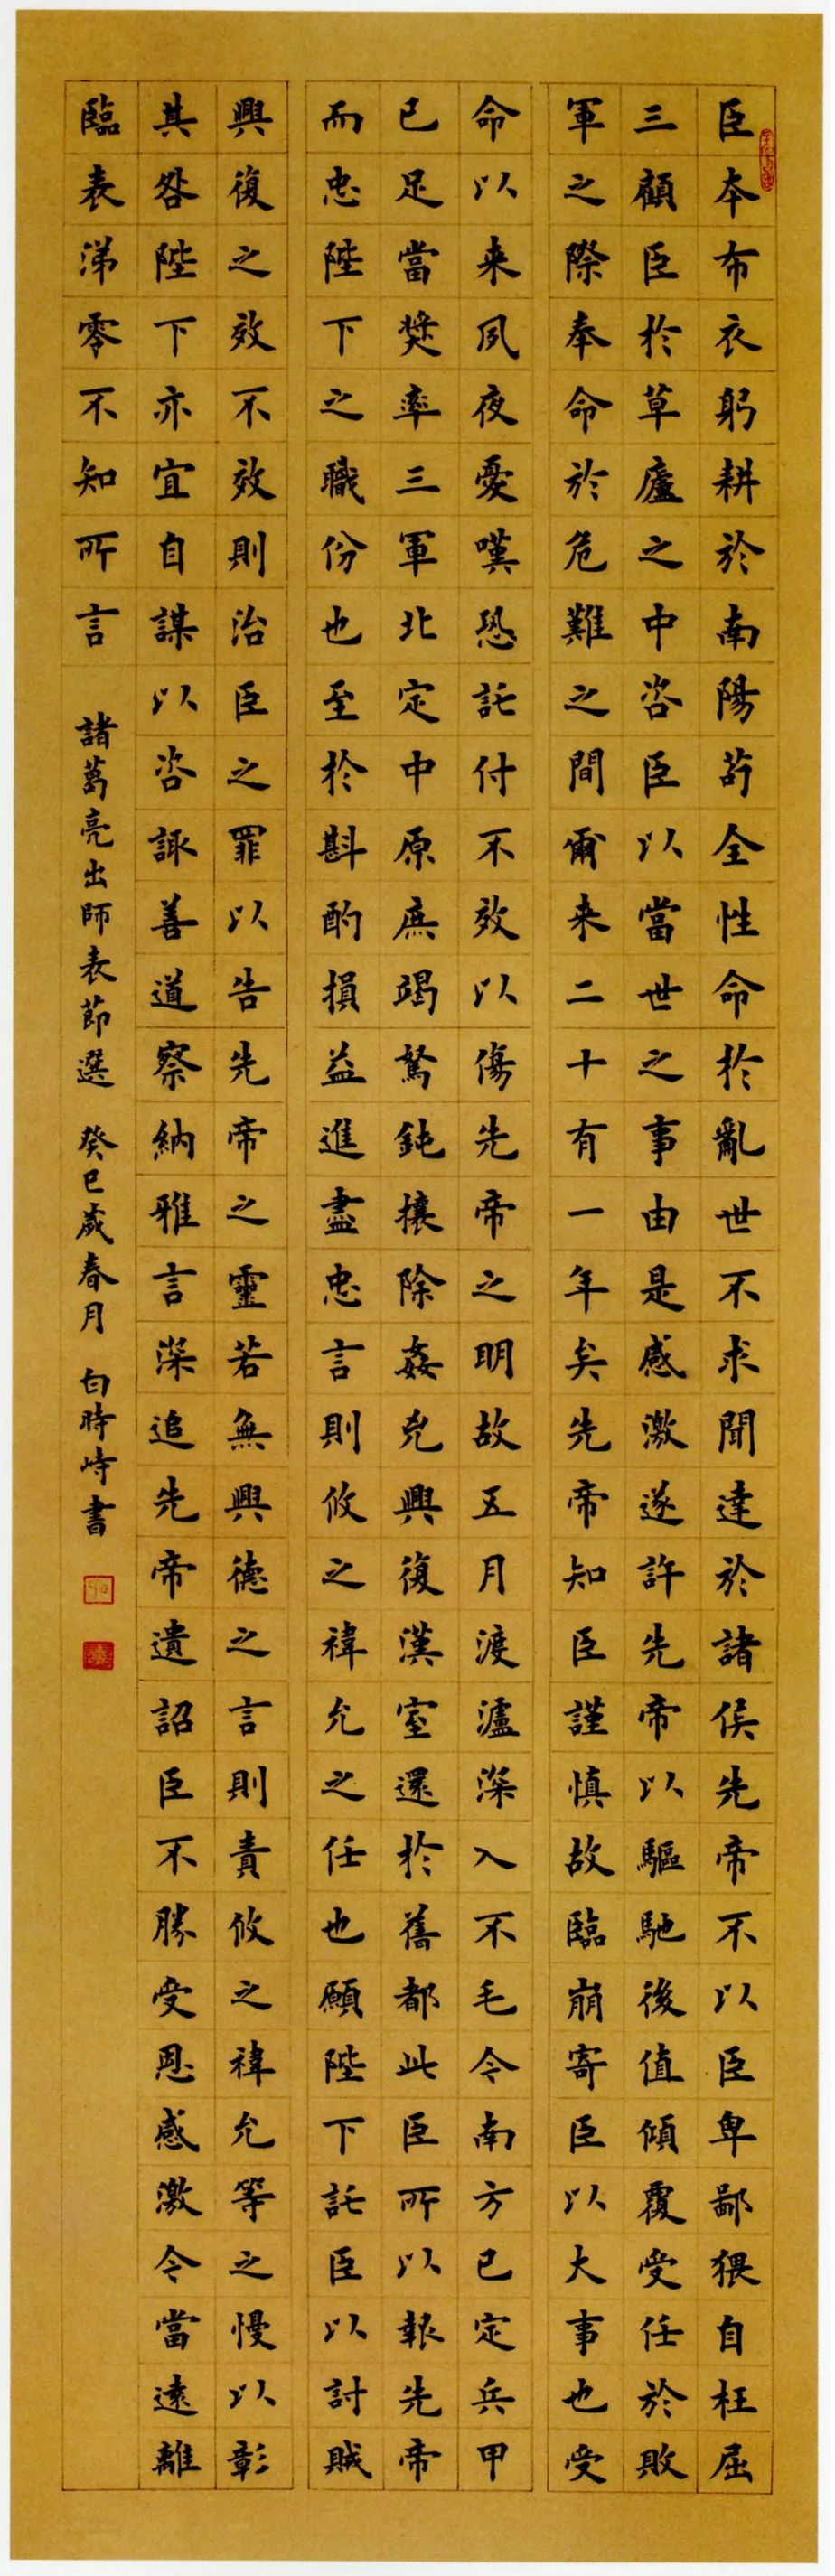 臣本布衣躬耕於南陽苟全性命於亂世不求聞達於諸侯先帝不以臣卑鄙猥自枉屈
三顧臣於草廬之中咨臣以當世之事由是感激遂許先帝以驅馳後值傾覆受任於敗
軍之際奉命於危難之間爾来二十有一年矣先帝知臣謹慎故臨崩寄臣以大事也受
命以来夙夜憂嘆恐託付不效以傷先帝之明故五月渡瀘深入不毛令南方已定兵甲
已足當奨率三軍北定中原庶竭駑鈍攘除姦兇興復漢室還於舊都此臣所以報先帝
而忠陛下之職份也至於斟酌損益進盡忠言則攸之禕允之任也願陛下託臣以討賊
興復之效不效則治臣之罪以告先帝之靈若無興德之言則責攸之禕允等之慢以彰
其咎陛下亦宜自謀以咨諏善道察納雅言深追先帝遺詔臣不勝受恩感激令當遠離
臨表涕零不知所言 諸葛亮出師表節選 癸巳歲春月 白時峙書